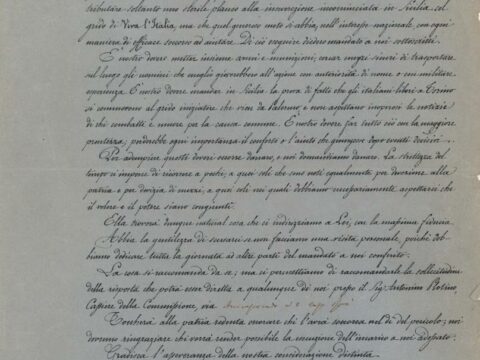 tributare soltanto uno sterile plauso alla insurrezione incominciata in Sicilia col
grido di Viva l'Italia, ma che quel generoso moto si abbia, nell'interesse nazionale, con ogni
maniera di efficace soccorso ad aiutare. Di ciò eseguire diedero mandato a noi sottoscritti.
È nostro dovere metter insieme armi e munizioni; creare mezzi sicuri di trasportare
sul luogo gli uomini che meglio gioverebbero all'azione con autorità di nome o con militare
esperienza. È nostro dovere mandar in Sicilia la prova di fatto che gli italiani liberi a Torino
si commossero al grido iniziatore che vien da Palermo, e non aspettano inoperosi la notizia
di chi combatte e muore per la causa comune. È nostro dovere far tutto ciò con la maggiore
prontezza, perderebbe ogni importanza il conforto e l'aiuto che giungesse dopo eventi decisivi.
Per adempiere questi doveri occorre danaro, e noi domandiamo danaro. La strettezza del
tempo ci impone di ricorrere a pochi, a quei soli che sono noti egualmente per devozione alla
patria e per dovizia di mezzi, a quei soli nei quali dobbiamo necessariamente aspettarci che
il volere e il potere siano congiunti.
Ella troverà dunque natural cosa che ci indirizziamo a Lei, con la massima fiducia.
Abbia la gentilezza di scusarci se non facciamo una visita personale, poichè dob-
biamo dedicare tutta la giornata ad altre parti del mandato a noi confidato.
La cosa si raccomanda da sè; ma ci permettiamo di raccomandarle la sollecitudine
della risposta che potrà esser diretta a qualunque di noi presso il Sig. Antonino Plutino,
Cassiere della Commissione, via
Toccherà alla patria redenta onorare chi l'avrà soccorsa nel dì del pericolo; noi
dovremo ringraziare chi vorrà render possibile la esecuzione dell'incarico a noi addossato.
Gradisca l'espressione della nostra considerazione distinta